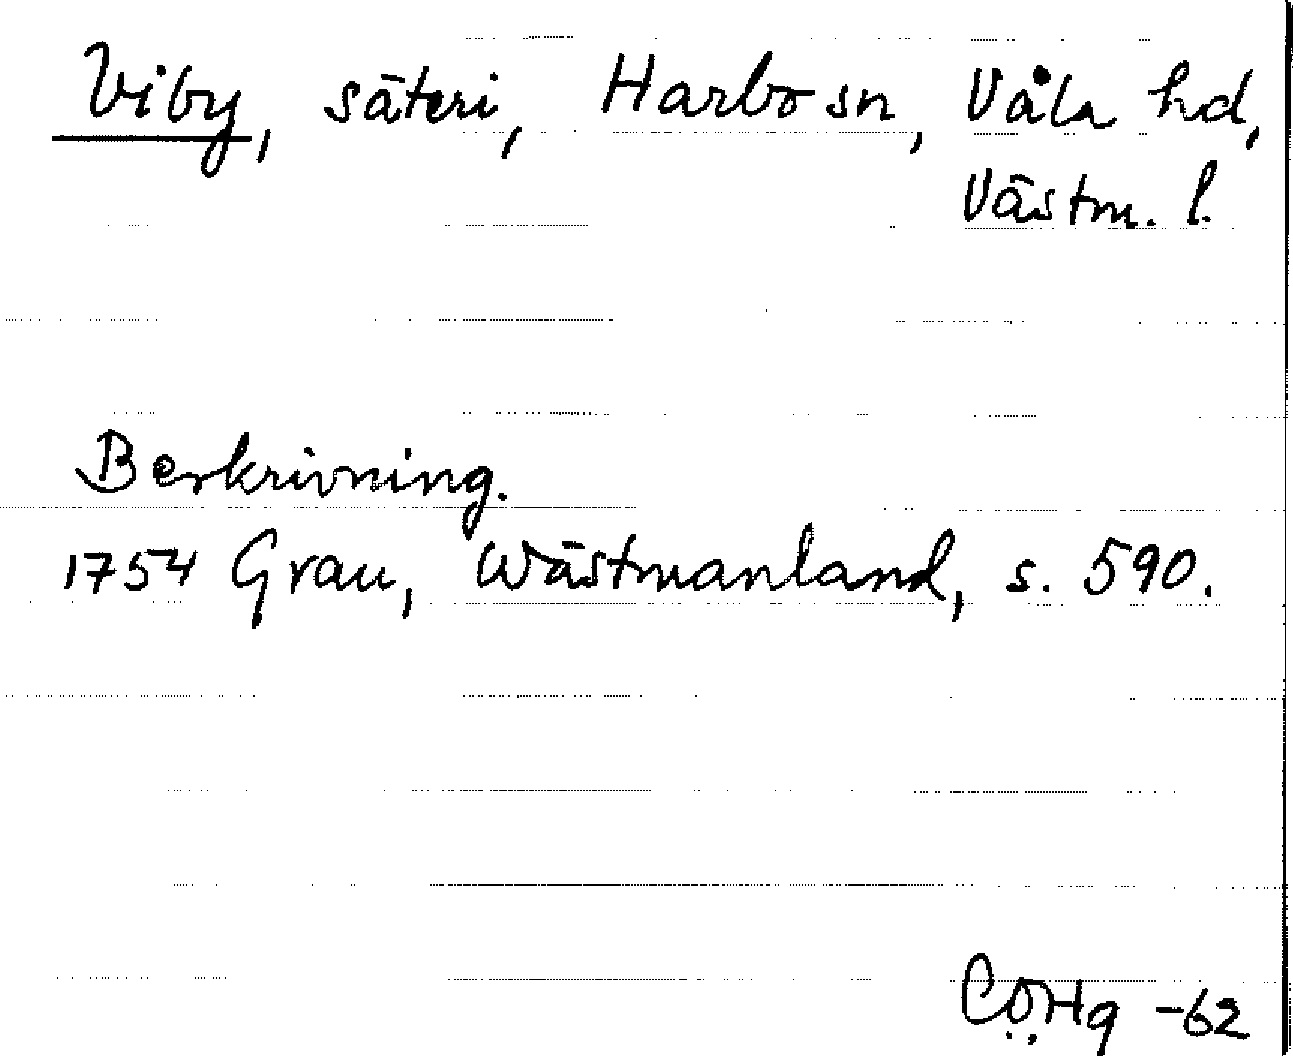 Viby, säteri, Harbo sn, Våla hd,
Västm. l.
Beskrivning.
1754 Grau, Wästmanland, s. 590.
CÖHg -62